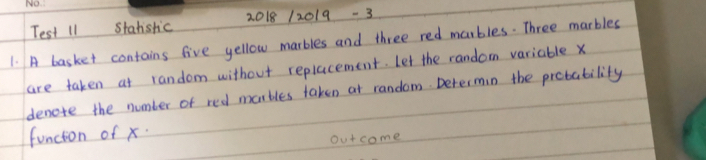 No.
Test 11 Statistic 2018 / 2019 - 3
1. A basket contains five yellow marbles and three red marbles. Three marbles
are taken at random without replacement. Let the random variable X
denote the number of red marbles taken at random. Determin the probability
function of X.
Outcome